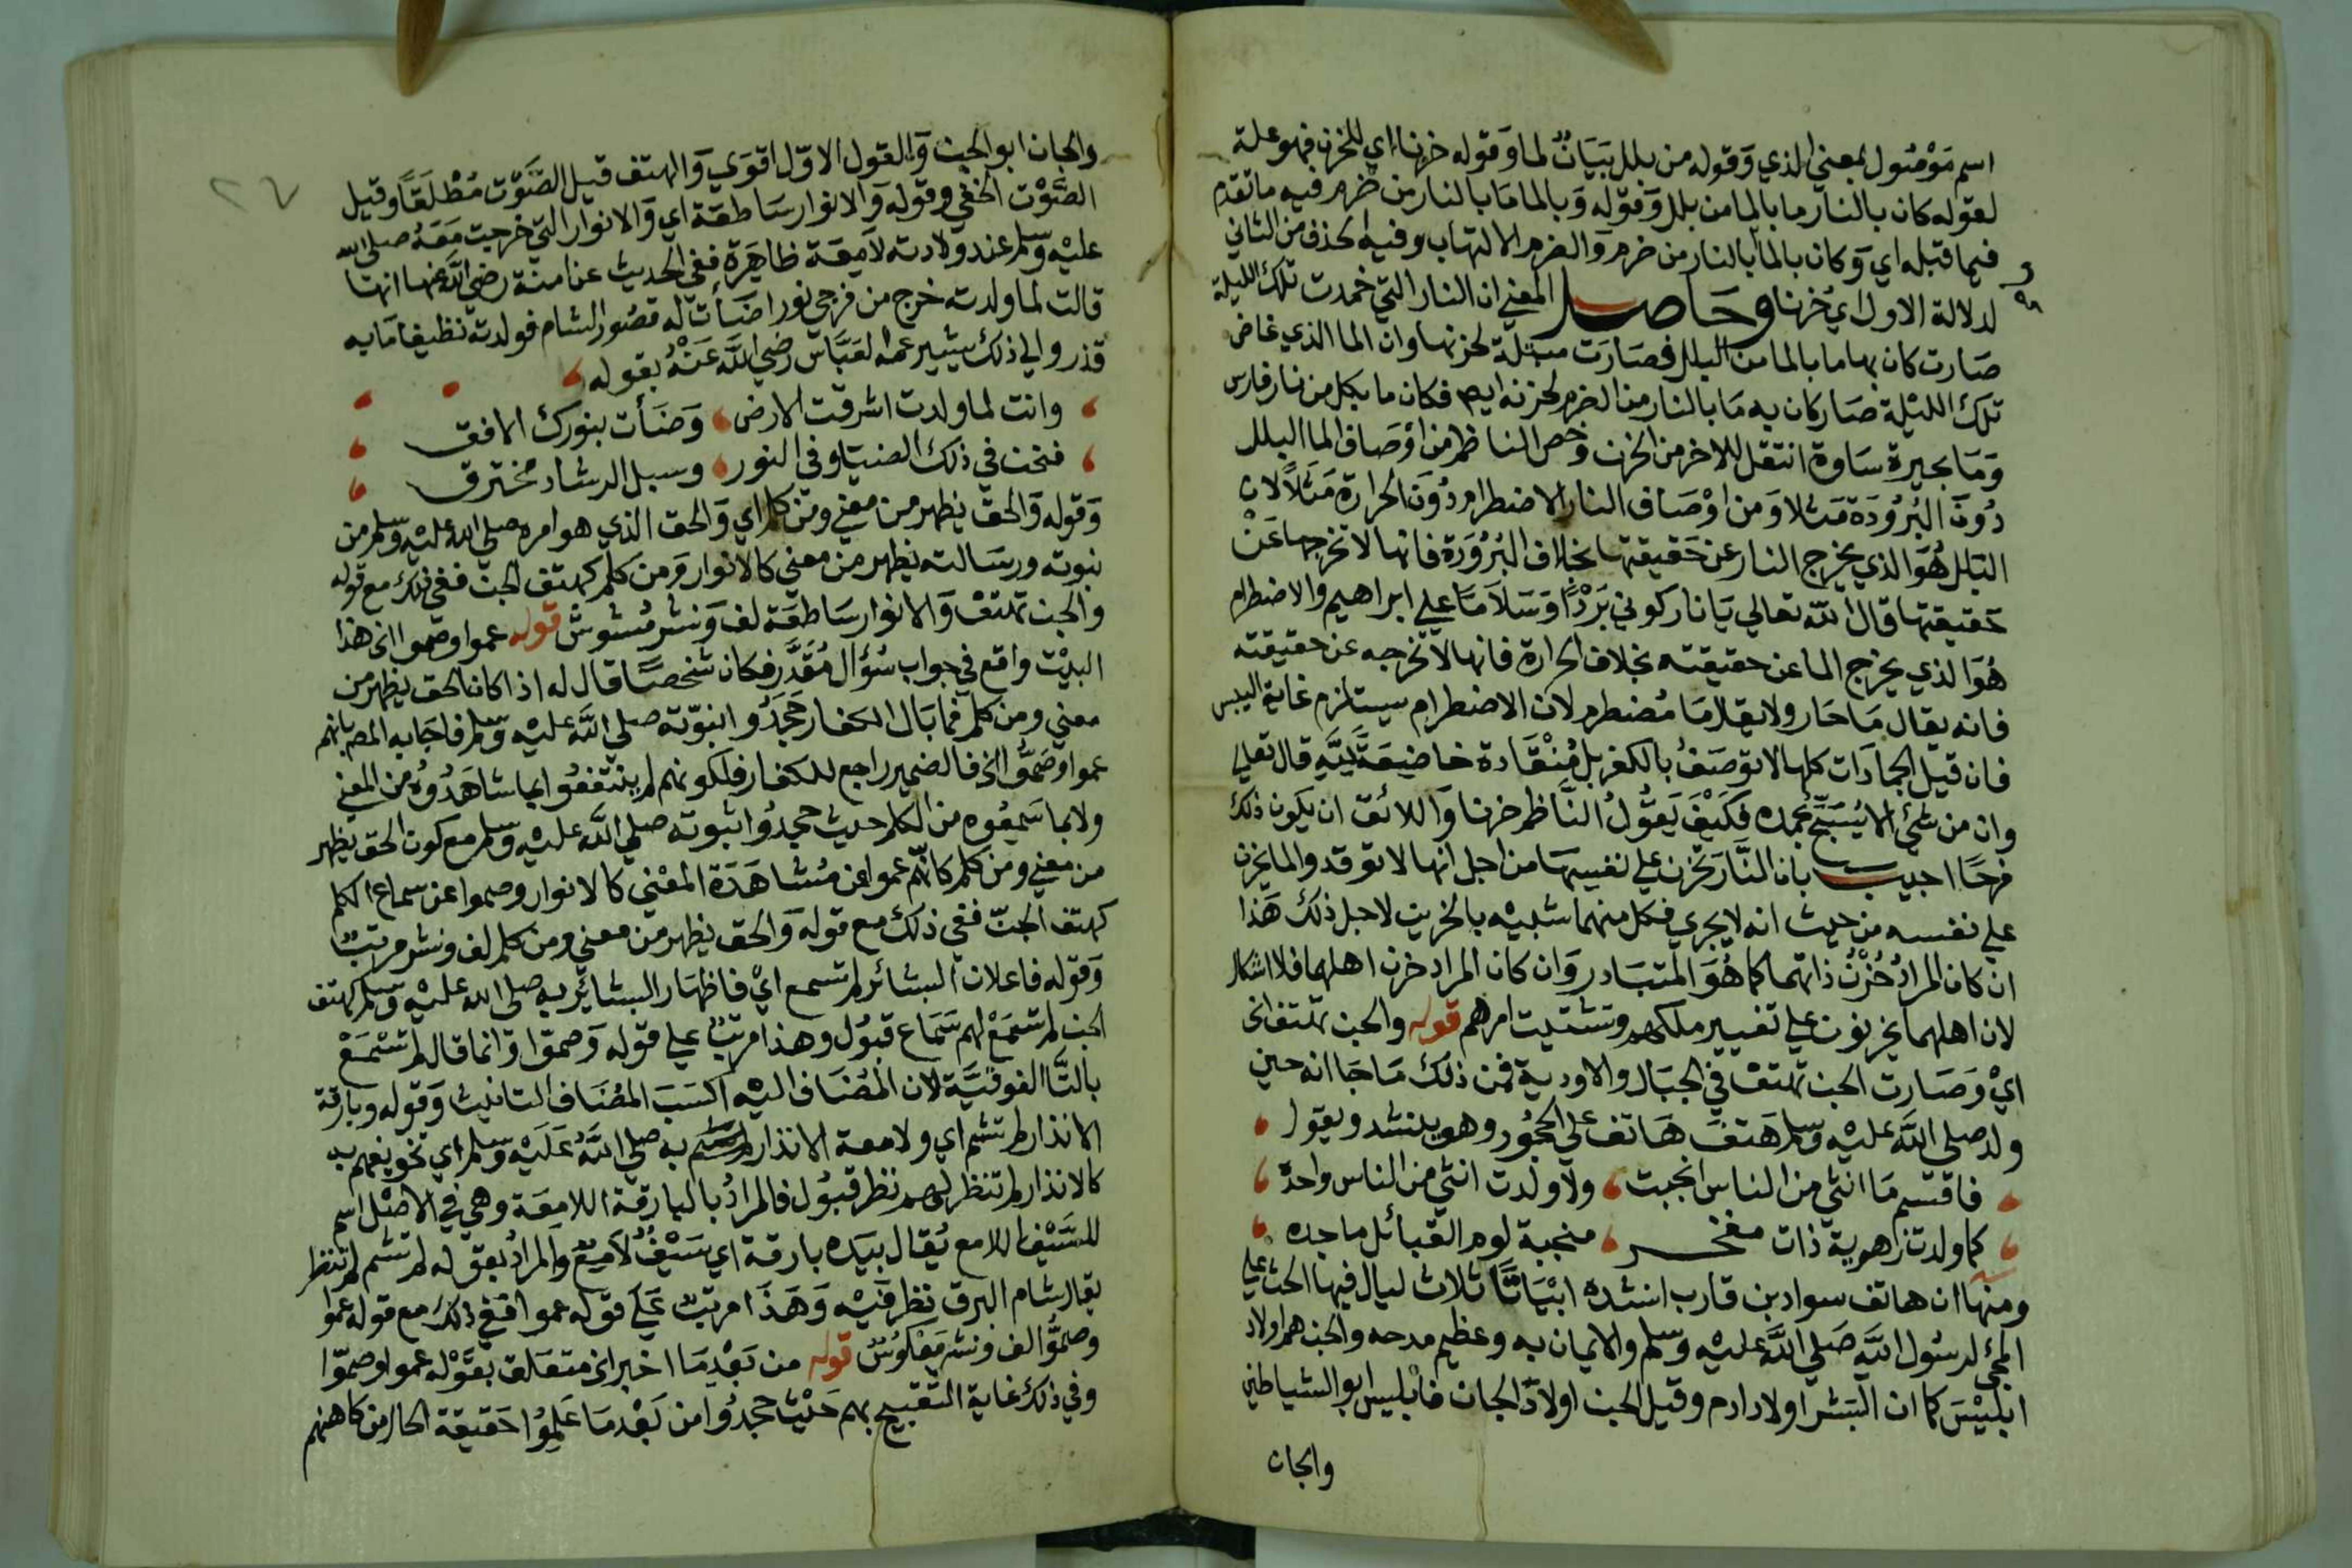 اسم موصول بمعني الذي وقوله من بلل بيان لما وقوله حزنا اي للحزن فهو علة
لقوله كان بالنار ما بالما من بلل وقوله وبالما ما بالنار من ضرم فيه ما تقدم
فيما قبله اي وكان بالما ما بالنار من ضرم والضرم الالتهاب وفيه الحذف من الثاني
لدلالة الاول اي حزنا وحاصل المعني ان النار التي خمدت تلك الليلة
صارت كان بها ما بالما من البلل فصارت مبتلة لحزنها وان الما الذي غاض
تلك الليلة صار كان به ما بالنار من الضرم لحزنه ايضا فكان ما بكل من نار فارس
وما بحيرة ساوة انتقل للاخر من الحزن وخص الناظم من اوصاف الما البلل
دون البرودة مثلا ومن اوصاف النار الاضطرام دون الحرارة مثلا لان
البلل هو الذي يخرج النار عن حقيقتها بخلاف البرودة فانها لا تخرجها عن
حقيقتها قال الله تعالي يا نار كوني بردا وسلاما علي ابراهيم والاضطرام
هو الذي يخرج الما عن حقيقته بخلاف الحرارة فانها لا تخرجه عن حقيقته
فانه يقال ما حار ولا يقال ما مضطرم لان الاضطرام يستلزم غاية اليبس
فان قيل الجمادات كلها لا توصف بالكفر بل منقادة خاضعة لله قال تعالي
وان من شئ الا يسبح بحمده فكيف يقول الناظم حزنا واللائق ان يكون ذلك
فرحا اجيب بان النار تحزن علي نفسها من اجل انها لا توقد والما يحزن
علي نفسه من حيث انه لا يجري فكل منهما شبيه بالحزين لاجل ذلك هذا
ان كان المراد حزن ذاتهما كما هو المتبادر وان كان المراد حزن اهلهما فلا اشكال
لان اهلهما يحزنون علي تغيير ملكهم وتشتيت امرهم قوله والجن تهتف الخ
اي وصارت الجن تهتف في الجبال والاودية فمن ذلك ما جا انه حين
ولد صلي الله عليه وسلم هتف هاتف علي الحجور وهو ينشد ويقول
فاقسم ما انثي من الناس انجبت ولا ولدت انثي من الناس واحدة
كما ولدت زاهرية ذات مفخر منجبة لوم القبائل ماجده
ومنها ان هاتف سواد بن قارب انشده ابياتا ثلاث ليال فيها الحث علي
المجئ لرسول الله صلي الله عليه وسلم والايمان به وعظيم مدحه والجن هم اولاد
ابليس كما ان البشر اولاد ادم وقيل الجن اولاد الجان فابليس ابو الشياطين
والجان
٢٦
والجان ابو الجن والقول الاول اقوي والهتف قيل الصوت مطلقا وقيل
الصوت الخفي وقوله والانوار ساطعة اي والانوار التي خرجت معه صلي الله
عليه وسلم عند ولادته لامعة ظاهرة ففي الحديث عن امنة رضي الله عنها انها
قالت لما ولدته خرج من فرجي نور اضأت له قصور الشام فولدته نظيفا ما به
قذر والي ذلك يشير عمه العباس رضي الله عنه بقوله
وانت لما ولدت اشرقت الارض وضأت بنورك الافق
فنحن في ذلك الضيا وفي النور وسبل الرشاد نخترق
وقوله والحق يظهر من معني ومن كلم اي والحق الذي هو امره صلي الله عليه وسلم من
نبوته ورسالته يظهر من معني كالانوار ومن كلم كهتف الجن ففي ذلك مع قوله
والجن تهتف والانوار ساطعة لف ونشر مشوش قوله عموا وصموا الخ هذا
البيت واقع في جواب سؤال مقدر فكان شخصا قال له اذا كان الحق يظهر من
معني ومن كلم فما بال الكفار جحدوا نبوته صلي الله عليه وسلم فاجابه المصم بانهم
عموا وصموا الخ فالضمير راجع للكفار فلكونهم لم ينتفعوا بما شاهدوه من المعني
ولا بما سمعوه من الكلم حيث جحدوا نبوته صلي الله عليه وسلم مع كون الحق يظهر
من معني ومن كلم كانهم عموا عن مشاهدة المعني كالانوار وصموا عن سماع الكلم
كهتف الجن ففي ذلك مع قوله والحق يظهر من معني ومن كلم لف ونشر مرتب
وقوله فاعلان البشائر لم تسمع اي فاظهار البشائر به صلي الله عليه وسلم كهتف
الجن لم تسمع لهم سماع قبول وهذا مرتب علي قوله وصموا وانما قال لم تسمع
بالتا الفوقية لان المضاف اليه اكسب المضاف التانيث وقوله وبارقة
الانذار لم تشم اي ولامعة الانذار به صلي الله عليه وسلم اي تخويفهم به
كالانذار لم تنظر لهم نظر قبول فالمراد بالبارقة اللامعة وهي في الاصل اسم
للسيف اللامع يقال بيده بارقة اي سيف لامع والمراد بقوله لم تشم لم تنظر
يقال شام البرق نظر فيه وهذا مرتب علي قوله عموا ففي ذلك مع قوله عموا
وصموا لف ونشر معكوس قوله من بعد ما اخبر الخ متعلق بقوله عموا وصموا
وفي ذلك غاية التقبيح بهم حيث جحدوا من بعد ما علموا حقيقة الحال من كاهنهم